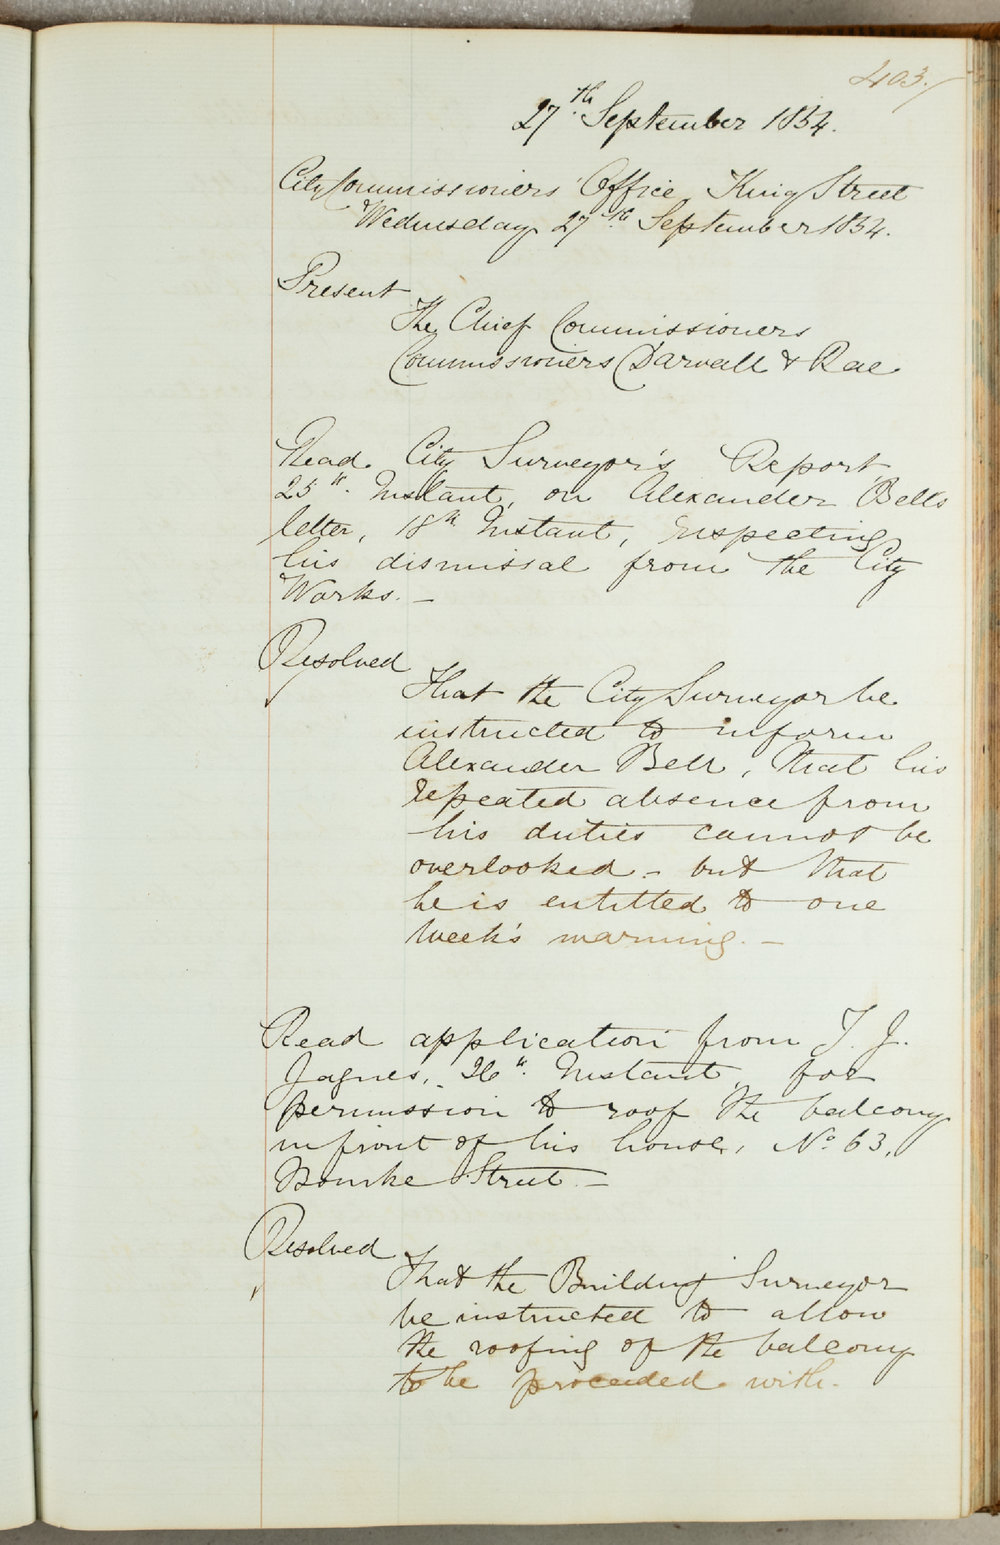 403.
27th September 1854.
City Commissioners' Office, King Street
Wednesday 27th September 1854.
Present
The Chief Commissioners
Commissioners Darvall & Rae
Read City Surveyor's Report
25th Instant, on Alexander Bell's
letter, 18th Instant, respecting
his dismissal from the City
Works. —
Resolved
That the City Surveyor be
instructed to inform
Alexander Bell, that his
repeated absence from
his duties cannot be
overlooked – but that
he is entitled to one
week's warning. —
Read application from T. J.
Jaques, 26th Instant, for
permission to roof the balcony
in front of his house, No. 63,
Bourke Street. —
Resolved
That the Building Surveyor
be instructed to allow
the roofing of the balcony
to be proceeded with.